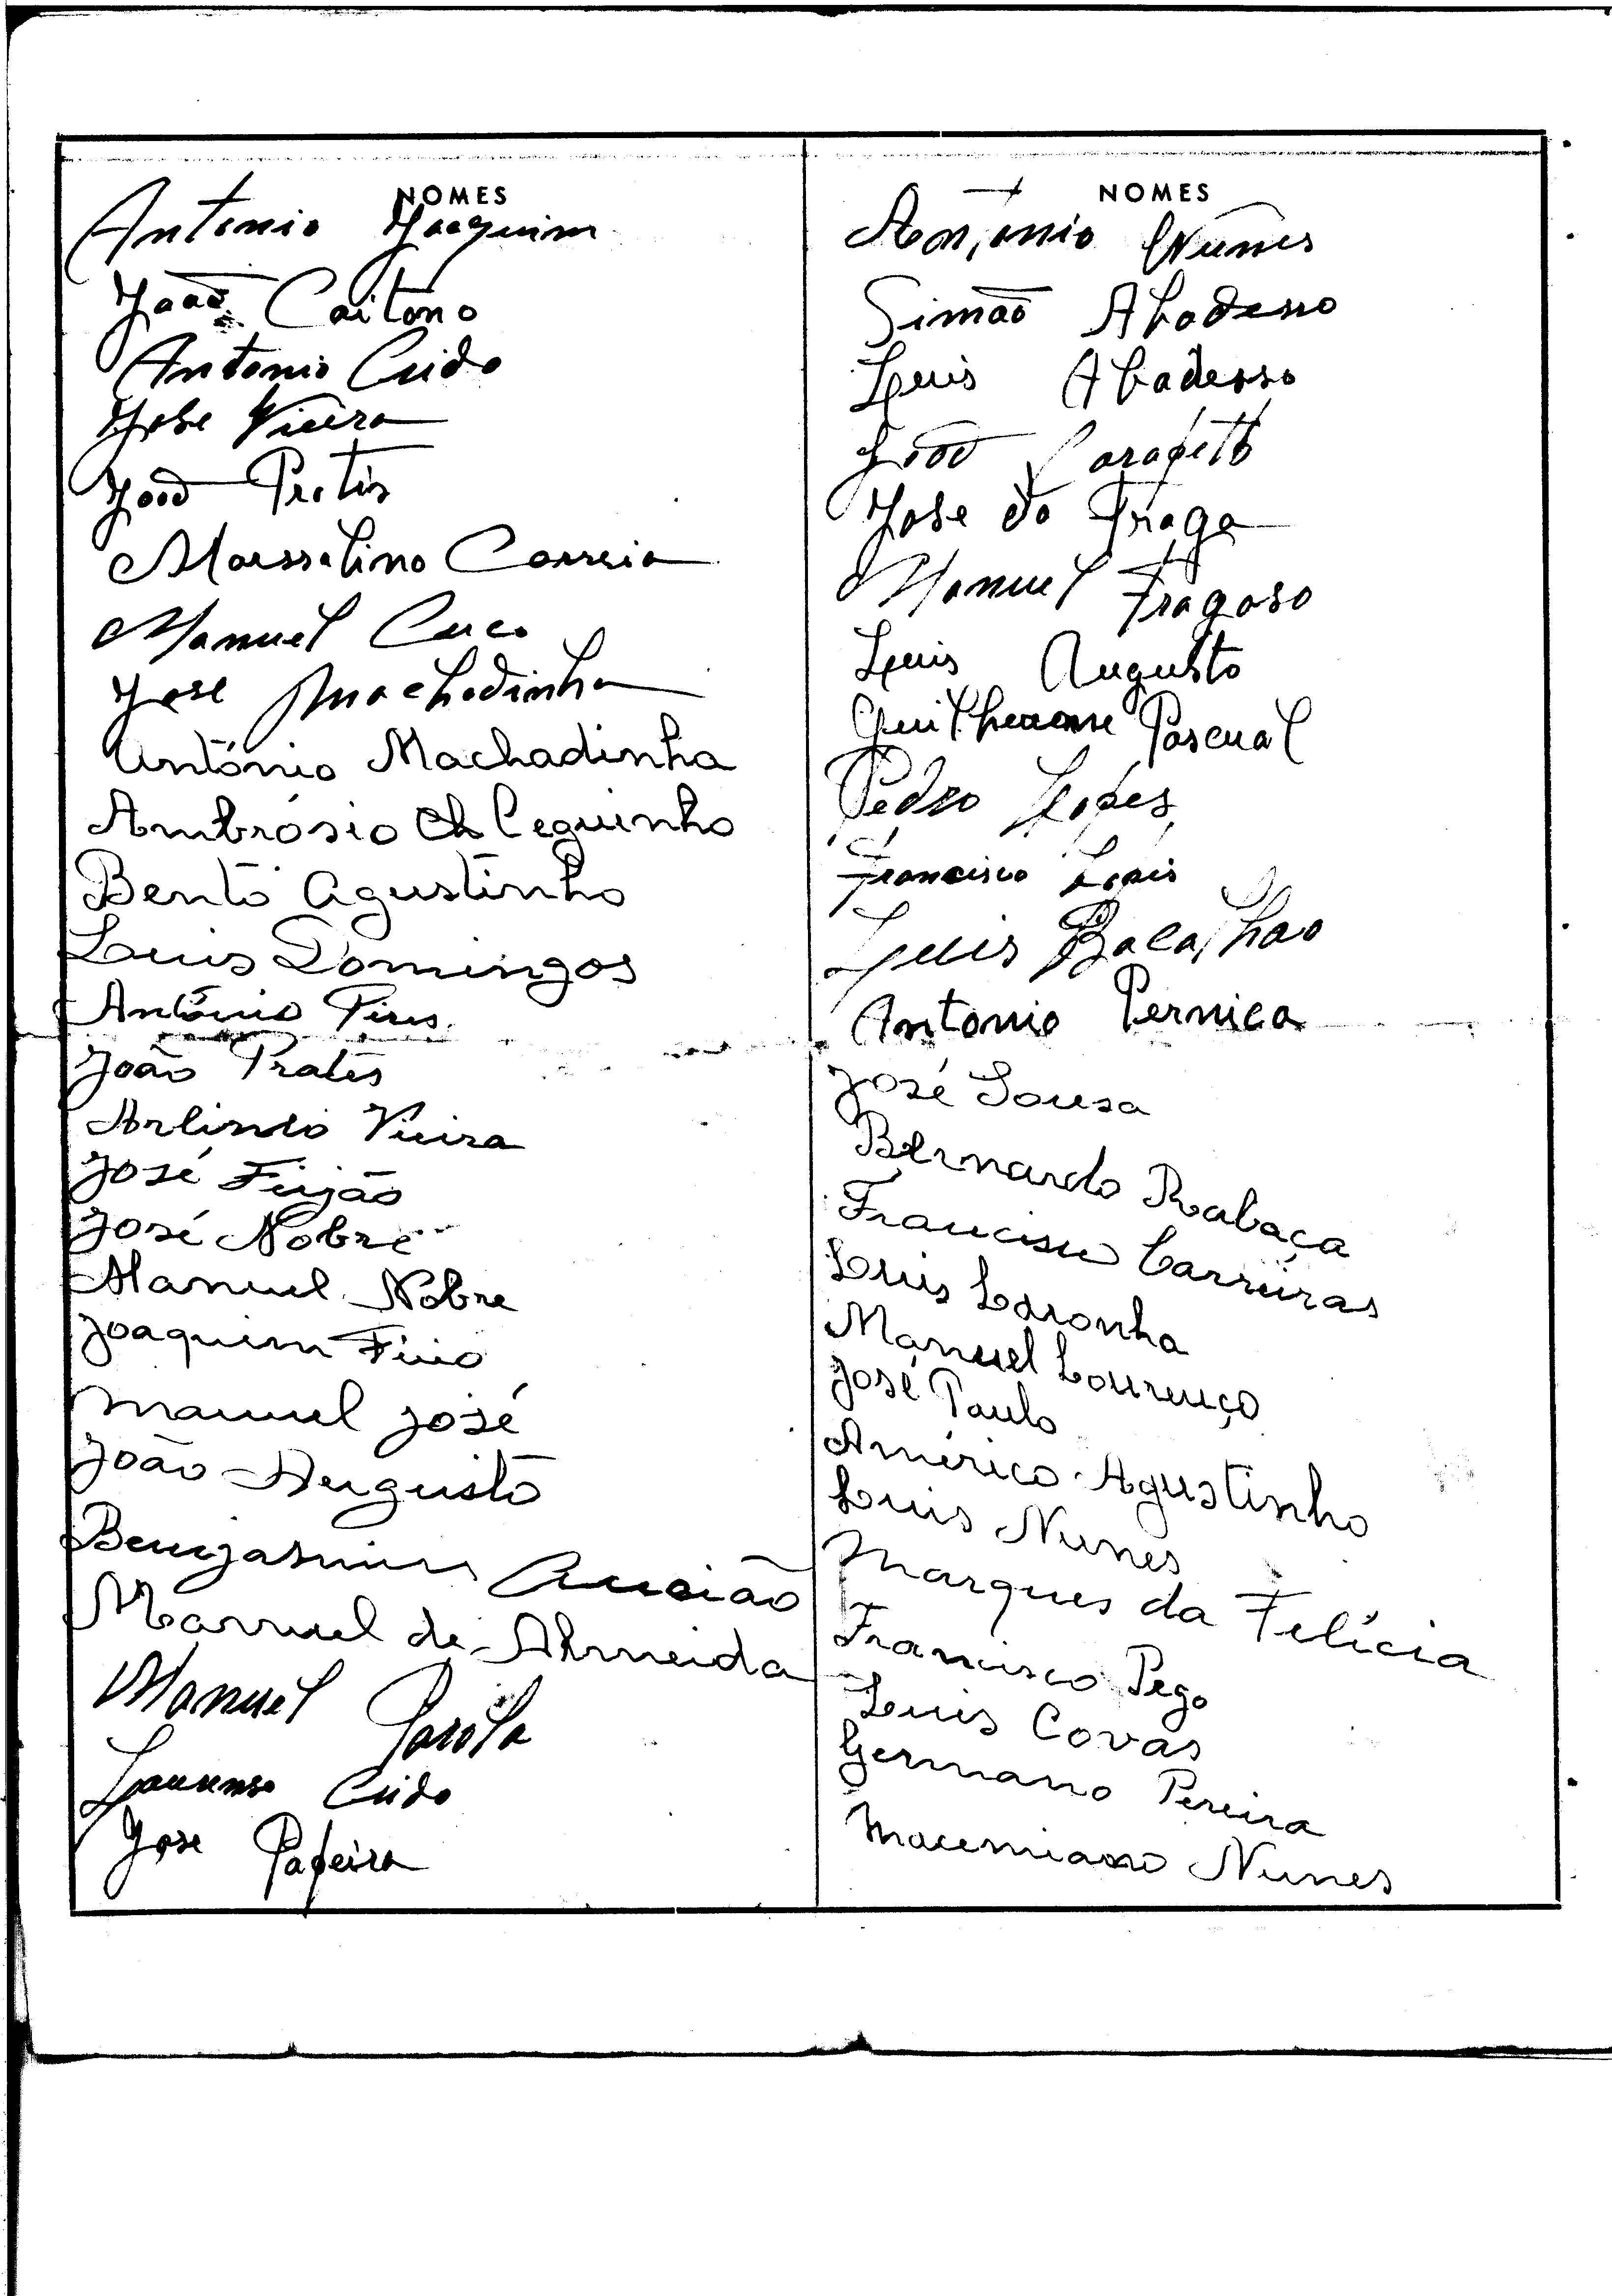 NOMES
Antonio Joaquim
João Caitano
Antonio Cuido
Jose Vieira
João Pratis
Marssalino Correia
Manuel Cuco
Jose Machadinha
António Machadinha
Ambrósio Ceguinho
Bento Agustinho
Luis Domingos
António Pires
João Prates
Arlindo Vieira
José Feijão
José Nobre
Manuel Nobre
Joaquim
Manuel José
João Augusto
Benjasmim Ancião
Manuel de Almeida
Manuel Parola
Lourenso Cuido
Jose Papeira
NOMES
Antonio Nunes
Simão Abadesso
Luis Abadesso
João Carapeto
Jose da Fraga
Manuel Fragoso
Luis Augusto
Guilherme Pascual
Pedro Lopes
Francisco Lopis
Luis Bacalhao
Antonio Pernica
José Sousa
Bernardo Rabaça
Francisco Carreiras
Luis Laronha
Manuel Lourenço
José Paulo
Américo Agustinho
Luis Nunes
Marques da Felícia
Francisco Pego
Luis Covas
Germano Pereira
Nunes